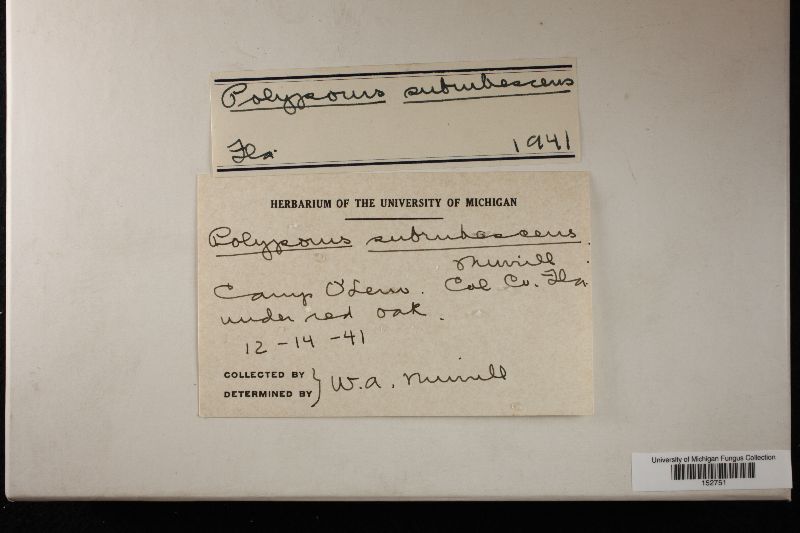 Polyporus subrubescens
Fla. 1941
HERBARIUM OF THE UNIVERSITY OF MICHIGAN
Polyporus subrubescens
Murrill
Camp O'Leno. Col Co. Fla.
under red oak.
12-14-41
COLLECTED BY
DETERMINED BY } W.A. Murrill
University of Michigan Fungus Collection
152751